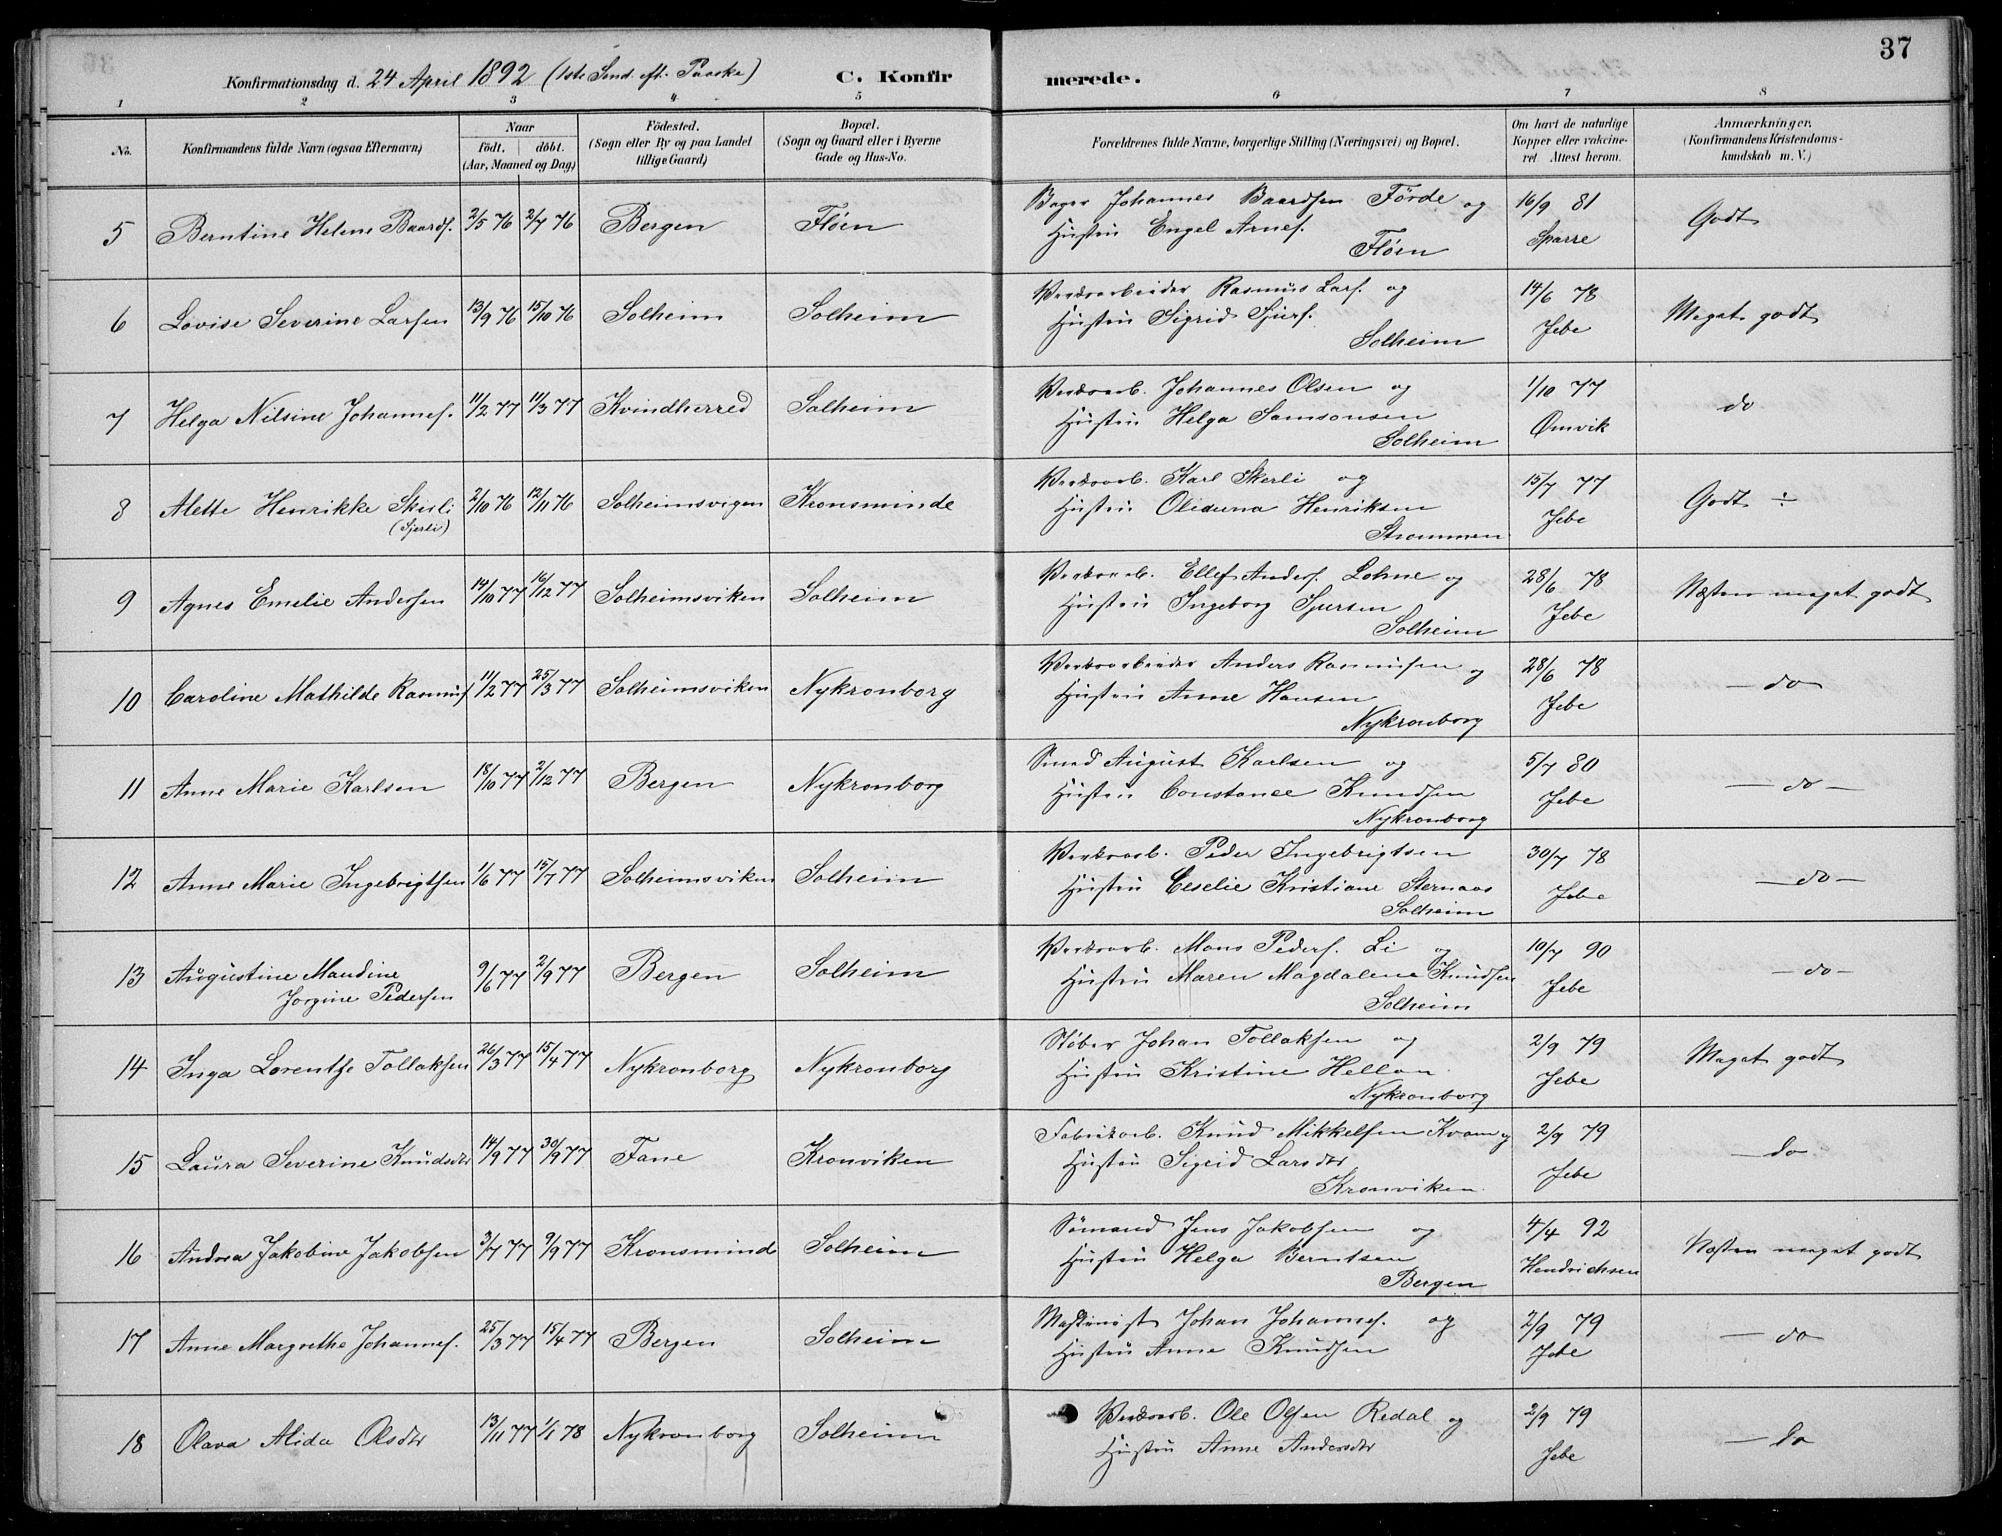 37
Konfirmationsdag d. 24 April 1892 (1ste Sønd. eft. Paaske) C. Konfirmerede.
1 2 3 4 5 6 7 8
No. | Konfirmandens fulde Navn (ogsaa Efternavn) | Naar födt. döbt. (Aar, Maaned og Dag) | Födested. (Sogn eller By og paa Landet tillige Gaard) | Bopæl. (Sogn og Gaard eller i Byerne Gade og Hus-No. | Forældrenes fulde Navne, borgerlige Stilling (Næringsvei) og Bopæl. | Om havt de naturlige Kopper eller vakcineret. Attest herom. | Anmærkninger. (Konfirmandens Kristendomskundskab m. V.)
5 Berntine Helene Baards. 2/5 76 2/7 76 Bergen Fløen Bager Johannes Baardsen Förde og 16/9 81 Godt
Hustru Engel Arnes. Sparre
Fløen
6 Lovise Severine Larsen 13/9 76 15/10 76 Solheim Solheim Værksarbeider Rasmus Lars. og 14/6 78 Meget godt
Hustru Sigrid Sjurs. Jebe
Solheim
7 Helga Nilsine Johannes. 11/2 77 11/3 77 Kvindherred Solheim Værksarb. Johannes Olsen og 1/10 77 do
Hustru Helga Samsonsen Omvik
Solheim
8 Alette Henrikke Skerli 2/10 76 12/11 76 Solheimsvigen Kronsminde Værksarb. Karl Skerli og 15/7 77 Godt ÷
(Sjerli) Hustru Henriksen Jebe
Strømmen
9 Agnes Emelie Andersen 14/10 77 16/12 77 Solheimsviken Solheim Værksarb. Ellef Anders. Lohne og 28/6 78 Næsten meget godt
Hustru Ingeborg Sjursen Jebe
Solheim
10 Caroline Mathilde Rasmus. 11/2 77 25/3 77 Solheimsviken Nykronborg Værksarbeider Anders Rasmusen og 28/6 78 — do
Hustru Anne Hansen Jebe
Nykronborg
11 Anne Marie Karlsen 18/10 77 2/12 77 Bergen Nykronborg Smed August Karlsen og 5/7 80 — do —
Hustru Constance Knudsen Jebe
Nykronborg
12 Anne Marie Ingebrigtsen 1/6 77 15/7 77 Solheimsviken Solheim Værksarb. Peder Ingebrigtsen 30/7 78 — do —
Hustru Ceselie Kristiane Sternaas Jebe
Solheim
13 Augustine Mandine 9/6 77 2/9 77 Bergen Solheim Værksarb. Mons Peders. Li og 10/7 90 — do —
Jorgine Pedersen Hustru Maren Magdalena Knudsen Jebe
Solheim
14 Inga Lorentse Tollaksen 26/3 77 15/4 77 Nykronborg Nykronborg Støber Johan Tollaksen og 2/9 79 Meget godt
Hustru Kristine Jebe
Nykronborg
15 Laura Severine Knudsdtr 14/9 77 30/9 77 Fane Kronviken Fabrikarb. Knud Mikkelsen Kvam og 2/9 79 — do
Hustru Sigrid Larsdtr Jebe
Kronviken
16 Andrea Jakobine Jakobsen 3/7 77 9/9 77 Kronsmind Solheim Sømand Jens Jakobsen og 4/4 92 Næsten meget godt
Hustru Helga Berntsen Hendrichsen
Bergen
17 Anne Margrethe Johannes. 25/3 77 15/4 77 Bergen Solheim Maskinist Johan Johannes. og 2/9 79 — do
Hustru Anne Knudsen Jebe
18 Olava Alida Olsdtr 13/11 77 1/1 78 Nykronborg Solheim Værksarb. Ole Olsen Redal og 2/9 79 — do
Hustru Anne Andersdtr Jebe